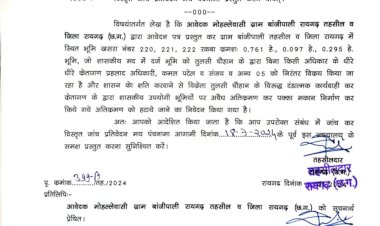 ---000---
विषयांतर्गत लेख है कि आवेदक मोहल्लेवासी ग्राम बांजीपाली रायगढ़ तहसील व
जिला रायगढ़ (छ.ग.) द्वारा आवेदन पत्र प्रस्तुत कर ग्राम बांजीपाली तहसील व जिला रायगढ़ में
स्थित भूमि खसरा नंबर 220, 221, 222 रकबा क्रमशः 0.761 हे., 0.097 हे., 0.295 हे.
भूमि, जो शासकीय मद में दर्ज भूमि को तुलसी चौहान के द्वारा बिना किसी अधिकार के धीरे
धीरे क्रेतागण प्रहलाद अधिकारी, कमल पटेल व संजय व अन्य 05 को निरंतर विक्रय किया जा
रहा है और शासन के क्षति करवाने से विक्रेता तुलसी चौहान के विरूद्ध दंडात्मक कार्यवाही कर
क्रेतागण के द्वारा शासकीय उपयोगी भूमियों पर अवैध अतिक्रमण कर पक्का मकान निर्माण कर
किये गये अतिक्रमण को हटाये जाने का निवेदन किया गया है।
अतः आपको आदेशित किया जाता है कि आप उपरोक्त संबंध में जांच कर
विस्तृत जांच प्रतिवेदन मय पंचनामा आगामी दिनांक 18-7-2024 के पूर्व इस न्यायालय के
समक्ष प्रस्तुत करना सुनिश्चित करें।
तहसीलदार
रायगढ़ (छ.ग.)
पृ. क्रमांक /तह./2024 रायगढ़ दिनांक
प्रतिलिपिः-
आवेदक मोहल्लेवासी ग्राम बांजीपाली रायगढ़ तहसील व जिला रायगढ़ (छ.ग.) को सूचनार्थ
प्रेषित।